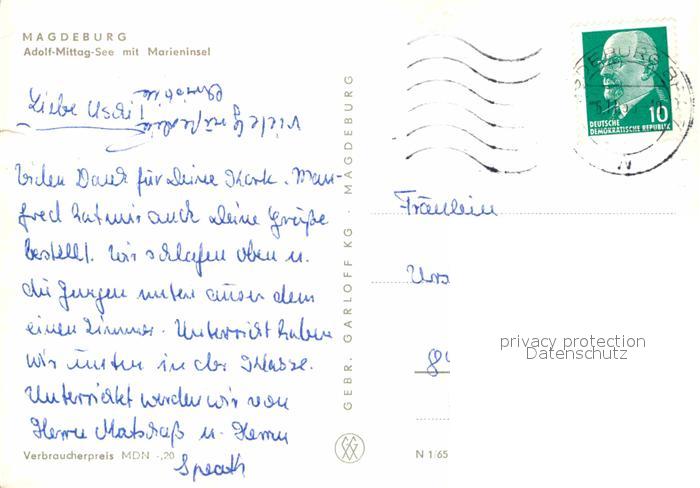 MAGDEBURG
Adolf-Mittag-See mit Marieninsel
Liebe Uschi!
Viele Grüße deine
Christine
Vielen Dank für Deine Karte. Man-
fred hat mir auch Deine Grüße
bestellt. Wir schlafen oben u.
die Jungen unten außer dem
einen Zimmer. Unterricht haben
wir unten in der Klasse.
Unterrichtet werden wir von
Herrn Matschaß u. Herrn
Speath
Verbraucherpreis MDN -,20
GEBR. GARLOFF KG · MAGDEBURG
N 1/65
10
DEUTSCHE
DEMOKRATISCHE REPUBLIK
Fräulein
Urs
privacy protection
Datenschutz